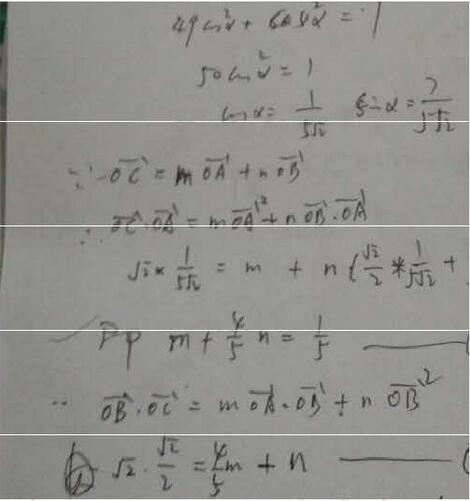 49cos²α + cos²α = 1
50cos²α = 1
cosα = 1/5√2 sinα = 7/5√2
∵ OC = m OA + n OB
∴ OC·OA = m OA² + n OB·OA
√2 × 1/5√2 = m + n (√2/2 * 1/5√2 +
即 m + 4/5 n = 1/5
∵ OB·OC = m OA·OB + n OB²
√2 · √2/2 = 4/5 m + n